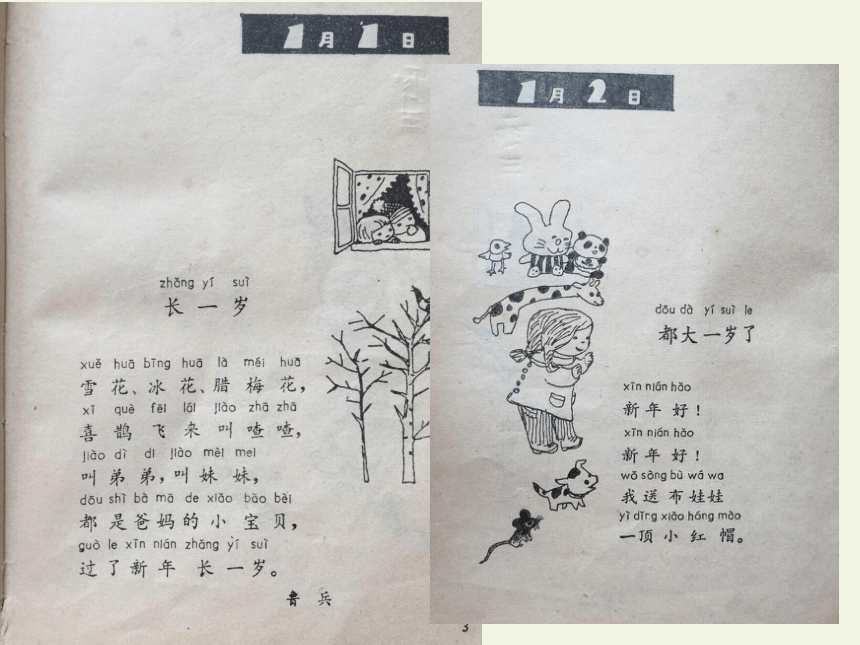 1月1日
zhǎng yí suì
长一岁
xuě huā bīng huā là méi huā
雪花、冰花、腊梅花，
xǐ què fēi lái jiào zhā zhā
喜鹊飞来叫喳喳，
jiào dì di jiào mèi mei
叫弟弟，叫妹妹，
dōu shì bà mā de xiǎo bǎo bèi
都是爸妈的小宝贝，
guò le xīn nián zhǎng yí suì
过了新年长一岁。
鲁兵
3
1月2日
dōu dà yí suì le
都大一岁了
xīn nián hǎo
新年好！
xīn nián hǎo
新年好！
wǒ sòng bù wá wa
我送布娃娃
yì dǐng xiǎo hóng mào
一顶小红帽。